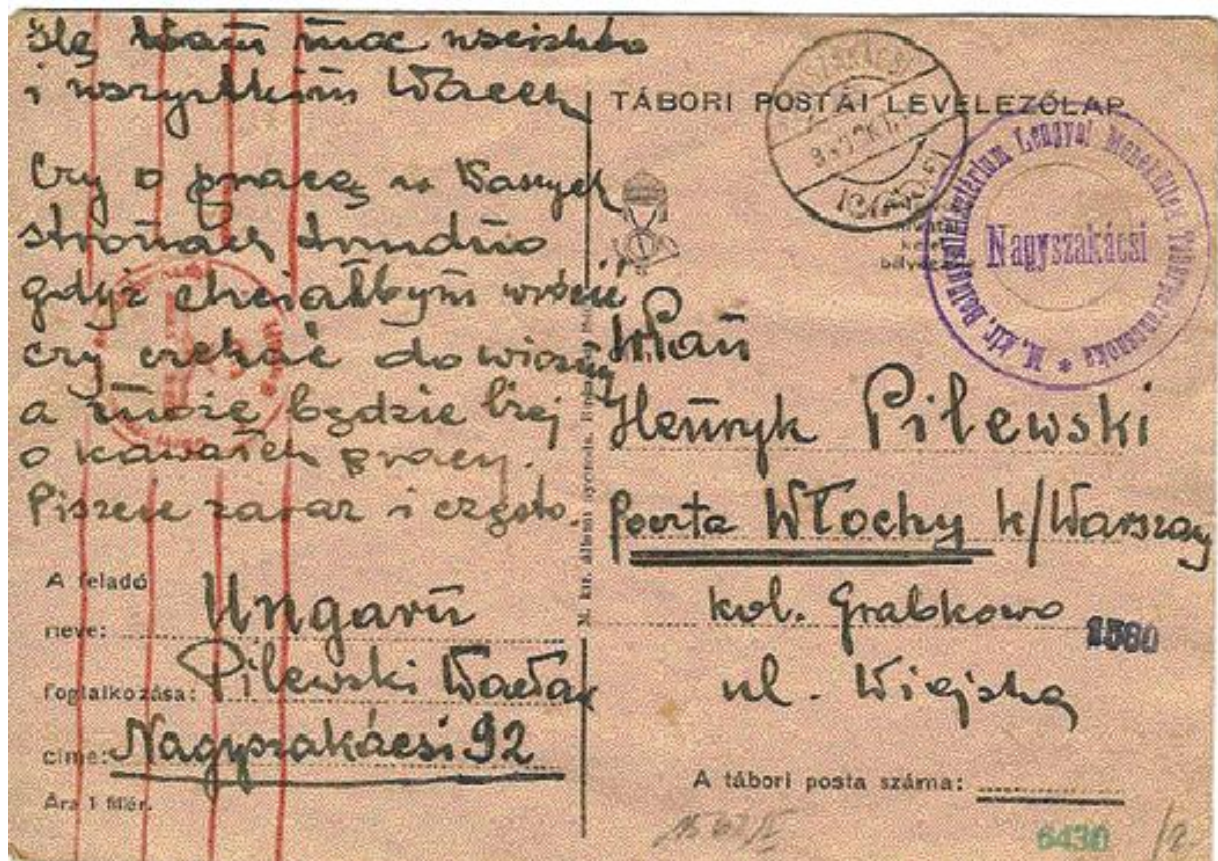 Ślę Wam moc uścisków
i wszystkim Wacek
Czy o pracę w Waszych
stronach trudno
gdyż chciałbym wrócić
czy czekać do wiosny
a może będzie lżej
o kawałek pracy.
Piszcie zaraz i często.
A feladó
neve: Ungarn
foglalkozása: Pilewski Wacław
címe: Nagyszakácsi 92
Ára 1 fillér.
TÁBORI POSTAI LEVELEZŐLAP
M. kir. Honvédelmi Minisztérium Lengyel Menekültek Táborparancsnoka *
Nagyszakácsi
WPan
Henryk Pilewski
poczta Włochy k/Warszawy
kol. Grabkowo
1580
ul. Wiejska
A tábori posta száma:
6430